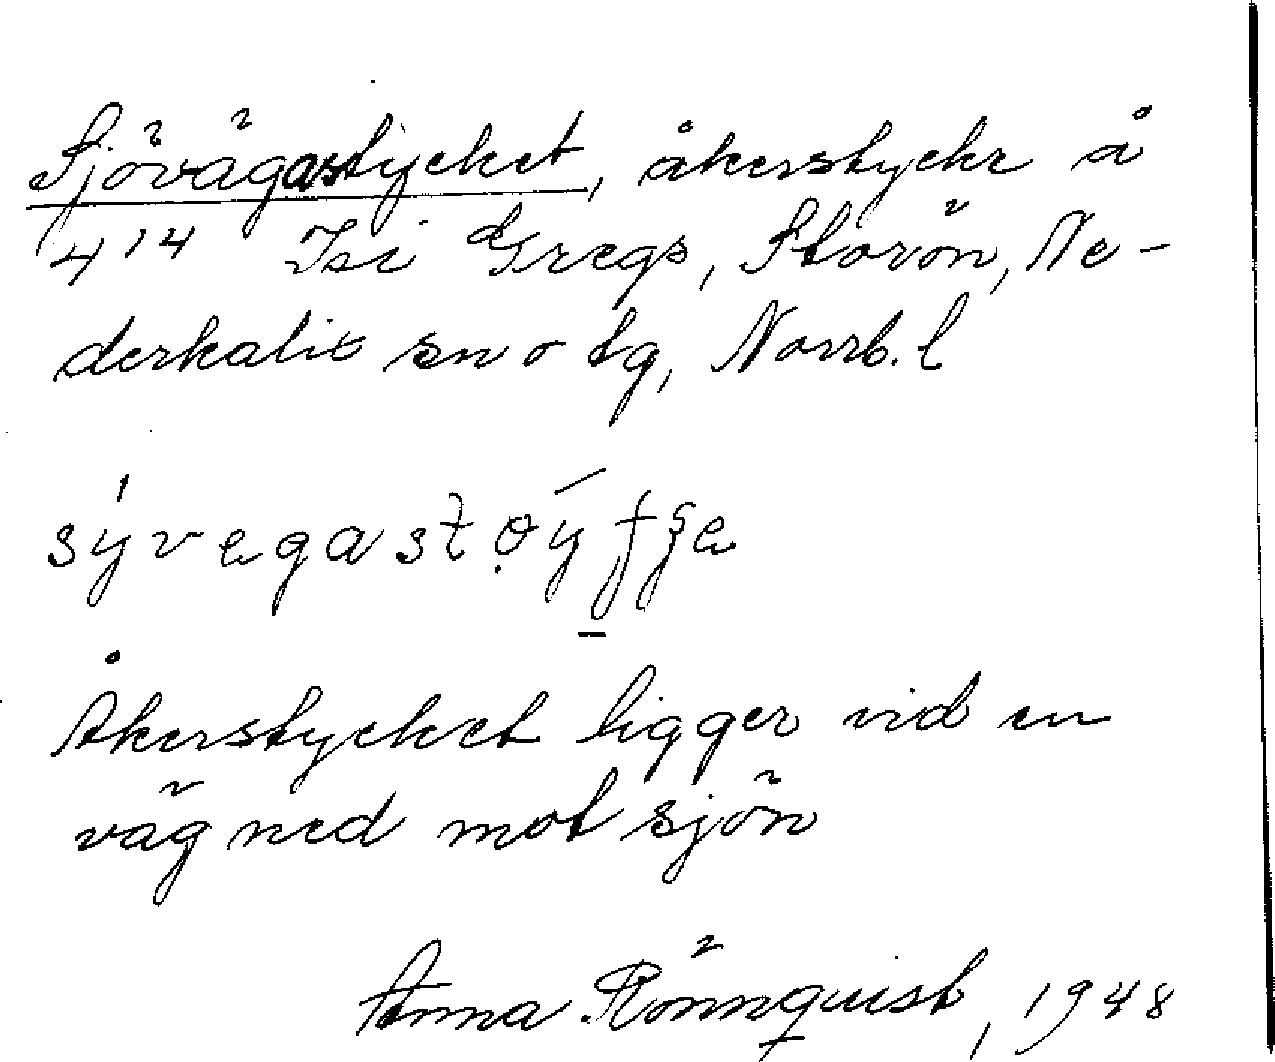 Sjövägastycket, åkerstycke å
4¹⁴ Isi Gregs, Storön, Ne-
derkalix sn o tg, Norrb. l

Åkerstycket ligger vid en
väg ned mot sjön
Anna Rönnquist, 1948